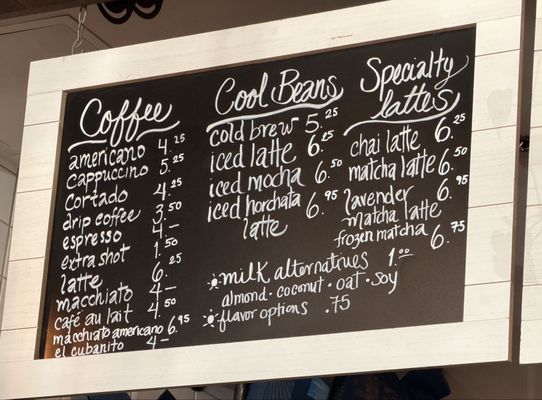 Coffee
americano 4.25
cappuccino 5.25
cortado 4.25
drip coffee 3.50
espresso 4.–
extra shot 1.50
latte 6.25
macchiato 4–
café au lait 4.50
macchiato americano 6.95
el cubanito 4–
Cool Beans
cold brew 5.25
iced latte 6.25
iced mocha 6.50
iced horchata 6.95
latte
Specialty
lattes
chai latte 6.25
matcha latte 6.50
lavender 6.95
matcha latte
frozen matcha 6.75
milk alternatives 1.00
almond · coconut · oat · soy
flavor options .75